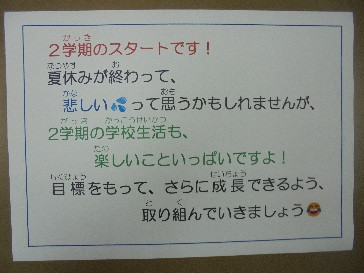 2学期のスタートです！
夏休みが終わって、
悲しい💦って思うかもしれませんが、
2学期の学校生活も、
楽しいこといっぱいですよ！
目標をもって、さらに成長できるよう、
取り組んでいきましょう😄